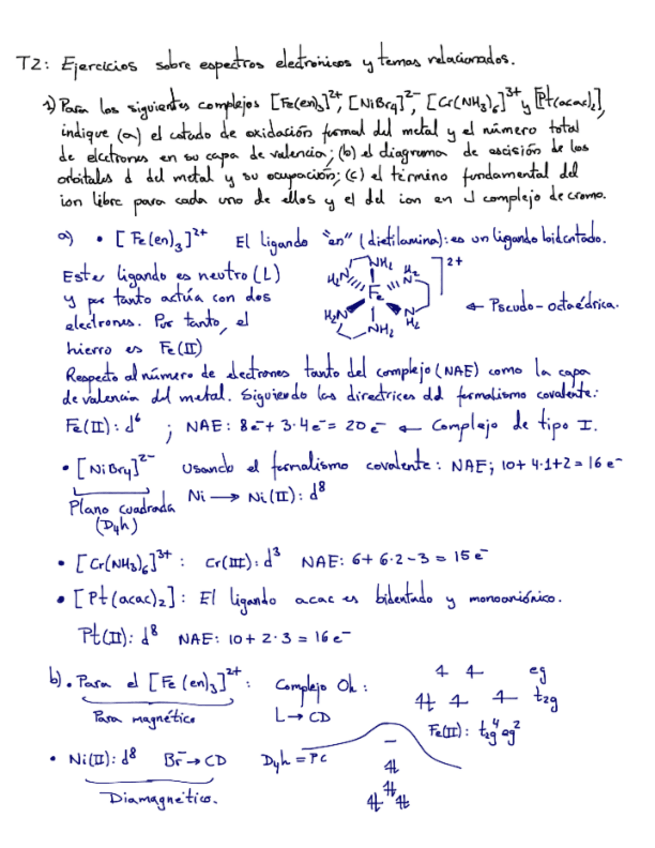 T2: Ejercicios sobre espectros electrónicos y temas relacionados.
1) Para los siguientes complejos [Fe(en)₃]²⁺, [NiBr₄]²⁻, [Cr(NH₃)₆]³⁺ y [Pt(acac)₂],
indique (a) el estado de oxidación formal del metal y el número total
de electrones en su capa de valencia; (b) el diagrama de escisión de los
orbitales d del metal y su ocupación; (c) el término fundamental del
ion libre para cada uno de ellos y el del ion en el complejo de cromo.
a) • [Fe(en)₃]²⁺ El ligando "en" (dietilamina): es un ligando bidentado.
Este ligando es neutro (L)
y por tanto actúa con dos
electrones. Por tanto, el
hierro es Fe(II)
NH₂ H₂N H₂N Fe N H₂ N H₂ NH₂ 2+
← Pseudo-octaédrica.
Respecto al número de electrones tanto del complejo (NAE) como la capa
de valencia del metal. Siguiendo las directrices del formalismo covalente:
Fe(II): d⁶ ; NAE: 8e⁻ + 3·4e⁻ = 20e⁻ ← Complejo de tipo I.
• [NiBr₄]²⁻ Usando el formalismo covalente: NAE; 10 + 4·1 + 2 = 16e⁻
Plano cuadrada Ni → Ni(II): d⁸
(D₄h)
• [Cr(NH₃)₆]³⁺ : Cr(III): d³ NAE: 6 + 6·2 - 3 = 15e⁻
• [Pt(acac)₂] : El ligando acac es bidentado y monoaniónico.
Pt(II): d⁸ NAE: 10 + 2·3 = 16e⁻
b) • Para el [Fe(en)₃]²⁺ : Complejo Oh : eg
Para magnético L → CD t₂g
Fe(II): t₂g⁴ eg²
• Ni(II): d⁸ Br⁻ → CD D₄h = PC
Diamagnético.